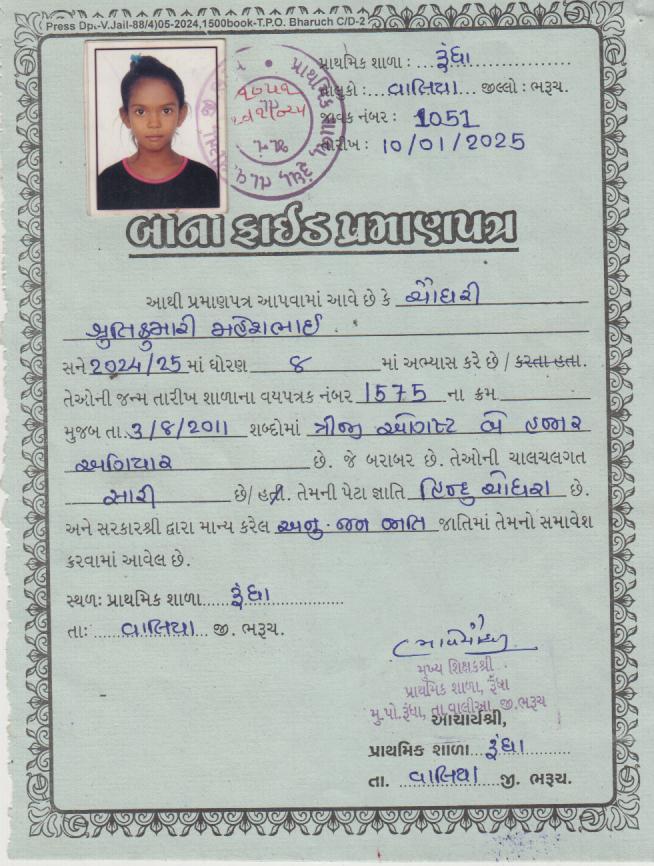 Press Dpt.-V.Jail-88/4)05-2024,1500book-T.P.O. Bharuch C/D-2
પ્રાથમિક શાળા : રૂંધા
તાલુકો : વાલિયા જીલ્લો : ભરૂચ.
જાવક નંબર : 1051
તારીખ : 10/01/2025
બોના ફાઈડ પ્રમાણપત્ર
આથી પ્રમાણપત્ર આપવામાં આવે છે કે ચૌધરી
શ્રુતિકુમારી મહેશભાઈ
સને 2024/25 માં ધોરણ ૮ માં અભ્યાસ કરે છે / કરતા હતા.
તેઓની જન્મ તારીખ શાળાના વયપત્રક નંબર 1575 ના ક્રમ
મુજબ તા. 3/8/2011 શબ્દોમાં ત્રીજી ઓગષ્ટ બે હજાર
અગિયાર છે. જે બરાબર છે. તેઓની ચાલચલગત
સારી છે/ હતી. તેમની પેટા જ્ઞાતિ હિન્દુ ચૌધરી છે.
અને સરકારશ્રી દ્વારા માન્ય કરેલ અનુ. જન જાતિ જાતિમાં તેમનો સમાવેશ
કરવામાં આવેલ છે.
સ્થળઃ પ્રાથમિક શાળા રૂંધા
તાઃ વાલિયા જી. ભરૂચ.
મુખ્ય શિક્ષકશ્રી
પ્રાથમિક શાળા, રૂંધા
મુ.પો.રૂંધા, તા.વાલીઆ, જી.ભરૂચ
આચાર્યશ્રી,
પ્રાથમિક શાળા રૂંધા
તા. વાલિયા જી. ભરૂચ.